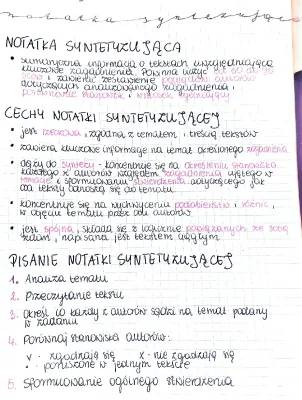 notatka syntezująca
NOTATKA SYNTETYZUJĄCA
• sumaryczna informacja o tekstach uwzględniająca
kluczowe zagadnienia. Powinna liczyć od 60 do 90
słów i zawierać zestawienie poglądów autorów
dotyczących analizowanego zagadnienia i
porównanie stanowisk i wniosek ogólniejszy
CECHY NOTATKI SYNTETYZUJĄCEJ
• jest rzeczowa, zgodna z tematem i treścią tekstów
• zawiera kluczowe informacje na temat określonego zagadnienia
• dąży do syntezy - koncentruje się na określeniu stanowiska
każdego z autorów względem zagadnienia ujętego w
temacie i sformułowaniu stwierdzenia dotyczącego jak
oba teksty odnoszą się do tematu
• koncentruje się na uchwyceniu podobieństw i różnic,
w ujęciu tematu przez obu autorów
• jest spójna, składa się z logicznie powiązanych ze sobą
zdań, napisana jest tekstem ciągłym.
PISANIE NOTATKI SYNTETYZUJĄCEJ
1. Analiza tematu
2. Przeczytanie tekstu
3. Określ co każdy z autorów sądzi na temat podany
w zadaniu
4. Porównaj stanowiska autorów:
v - zgadzają się x - nie zgadzają się
• poruszone w jednym tekście
5. Sformułowanie ogólnego stwierdzenia